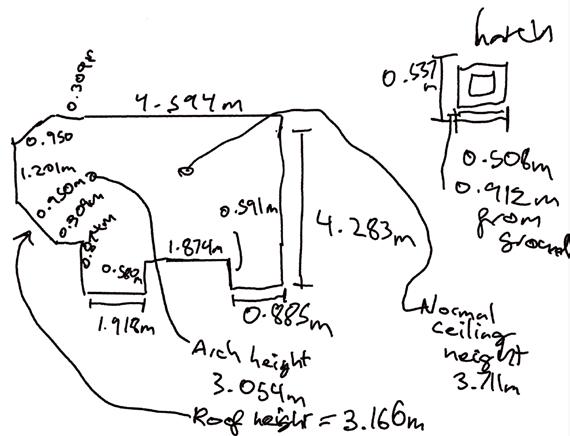 hatch
0.309m
4.594m
0.537
m
0.950
1.201m
0.508m
0.912m
from
ground
0.950m
0.309m
0.591m
4.283m
1.874m
0.580
m
1.918m
0.885m
Arch height
3.054m
Roof height = 3.166m
Normal
ceiling
height
3.711m